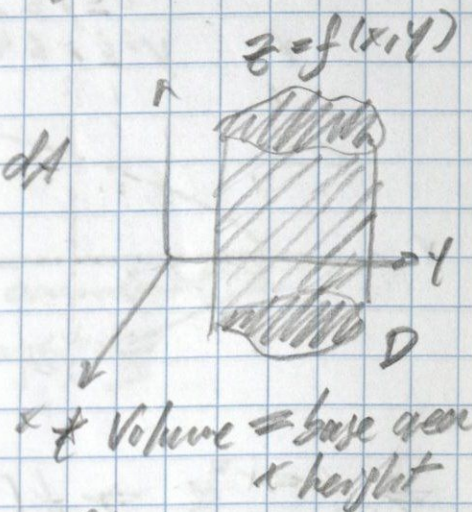 z = f(x,y)
dA
y
D
x
* Volume = base area
x height